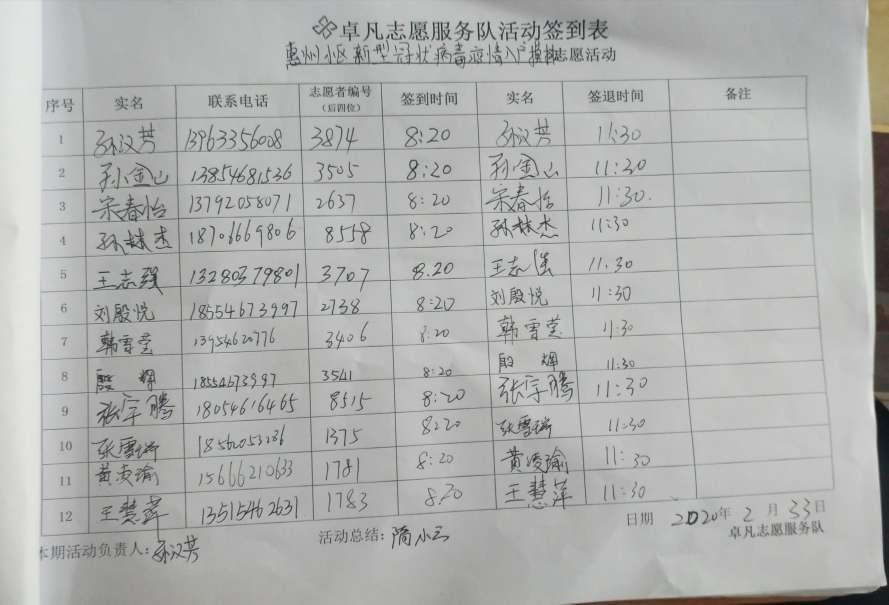 卓凡志愿服务队活动签到表
惠州小区新型冠状病毒疫情入户摸排志愿活动
序号 实名 联系电话 志愿者编号（后四位） 签到时间 实名 签退时间 备注
1 孙汉芳 13963356008 3874 8:20 孙汉芳 11:30
2 孙金山 13854681536 3505 8:20 孙金山 11:30
3 宋春怡 13792058071 2637 8:20 宋春怡 11:30.
4 孙林杰 18706669806 8558 8:20 孙林杰 11:30
5 王志强 13280379801 3707 8.20 王志强 11.30
6 刘殷悦 18554673997 2738 8:20 刘殷悦 11:30
7 韩雪莹 13954620776 3406 8:20 韩雪莹 11:30
8 殷 辉 18554673997 3541 8:20 殷 辉 11:30
9 张宇腾 18054616465 8515 8:20 张宇腾 11:30
10 张雪瑞 1375 8:20 张雪瑞 11:30
11 黄凌瑜 15666210633 1781 8:20 黄凌瑜 11:30
12 王慧萍 13515462631 1783 8.20 王慧萍 11:30
日期 2020年2月 日
本期活动负责人：孙汉芳 活动总结：隋小云 卓凡志愿服务队